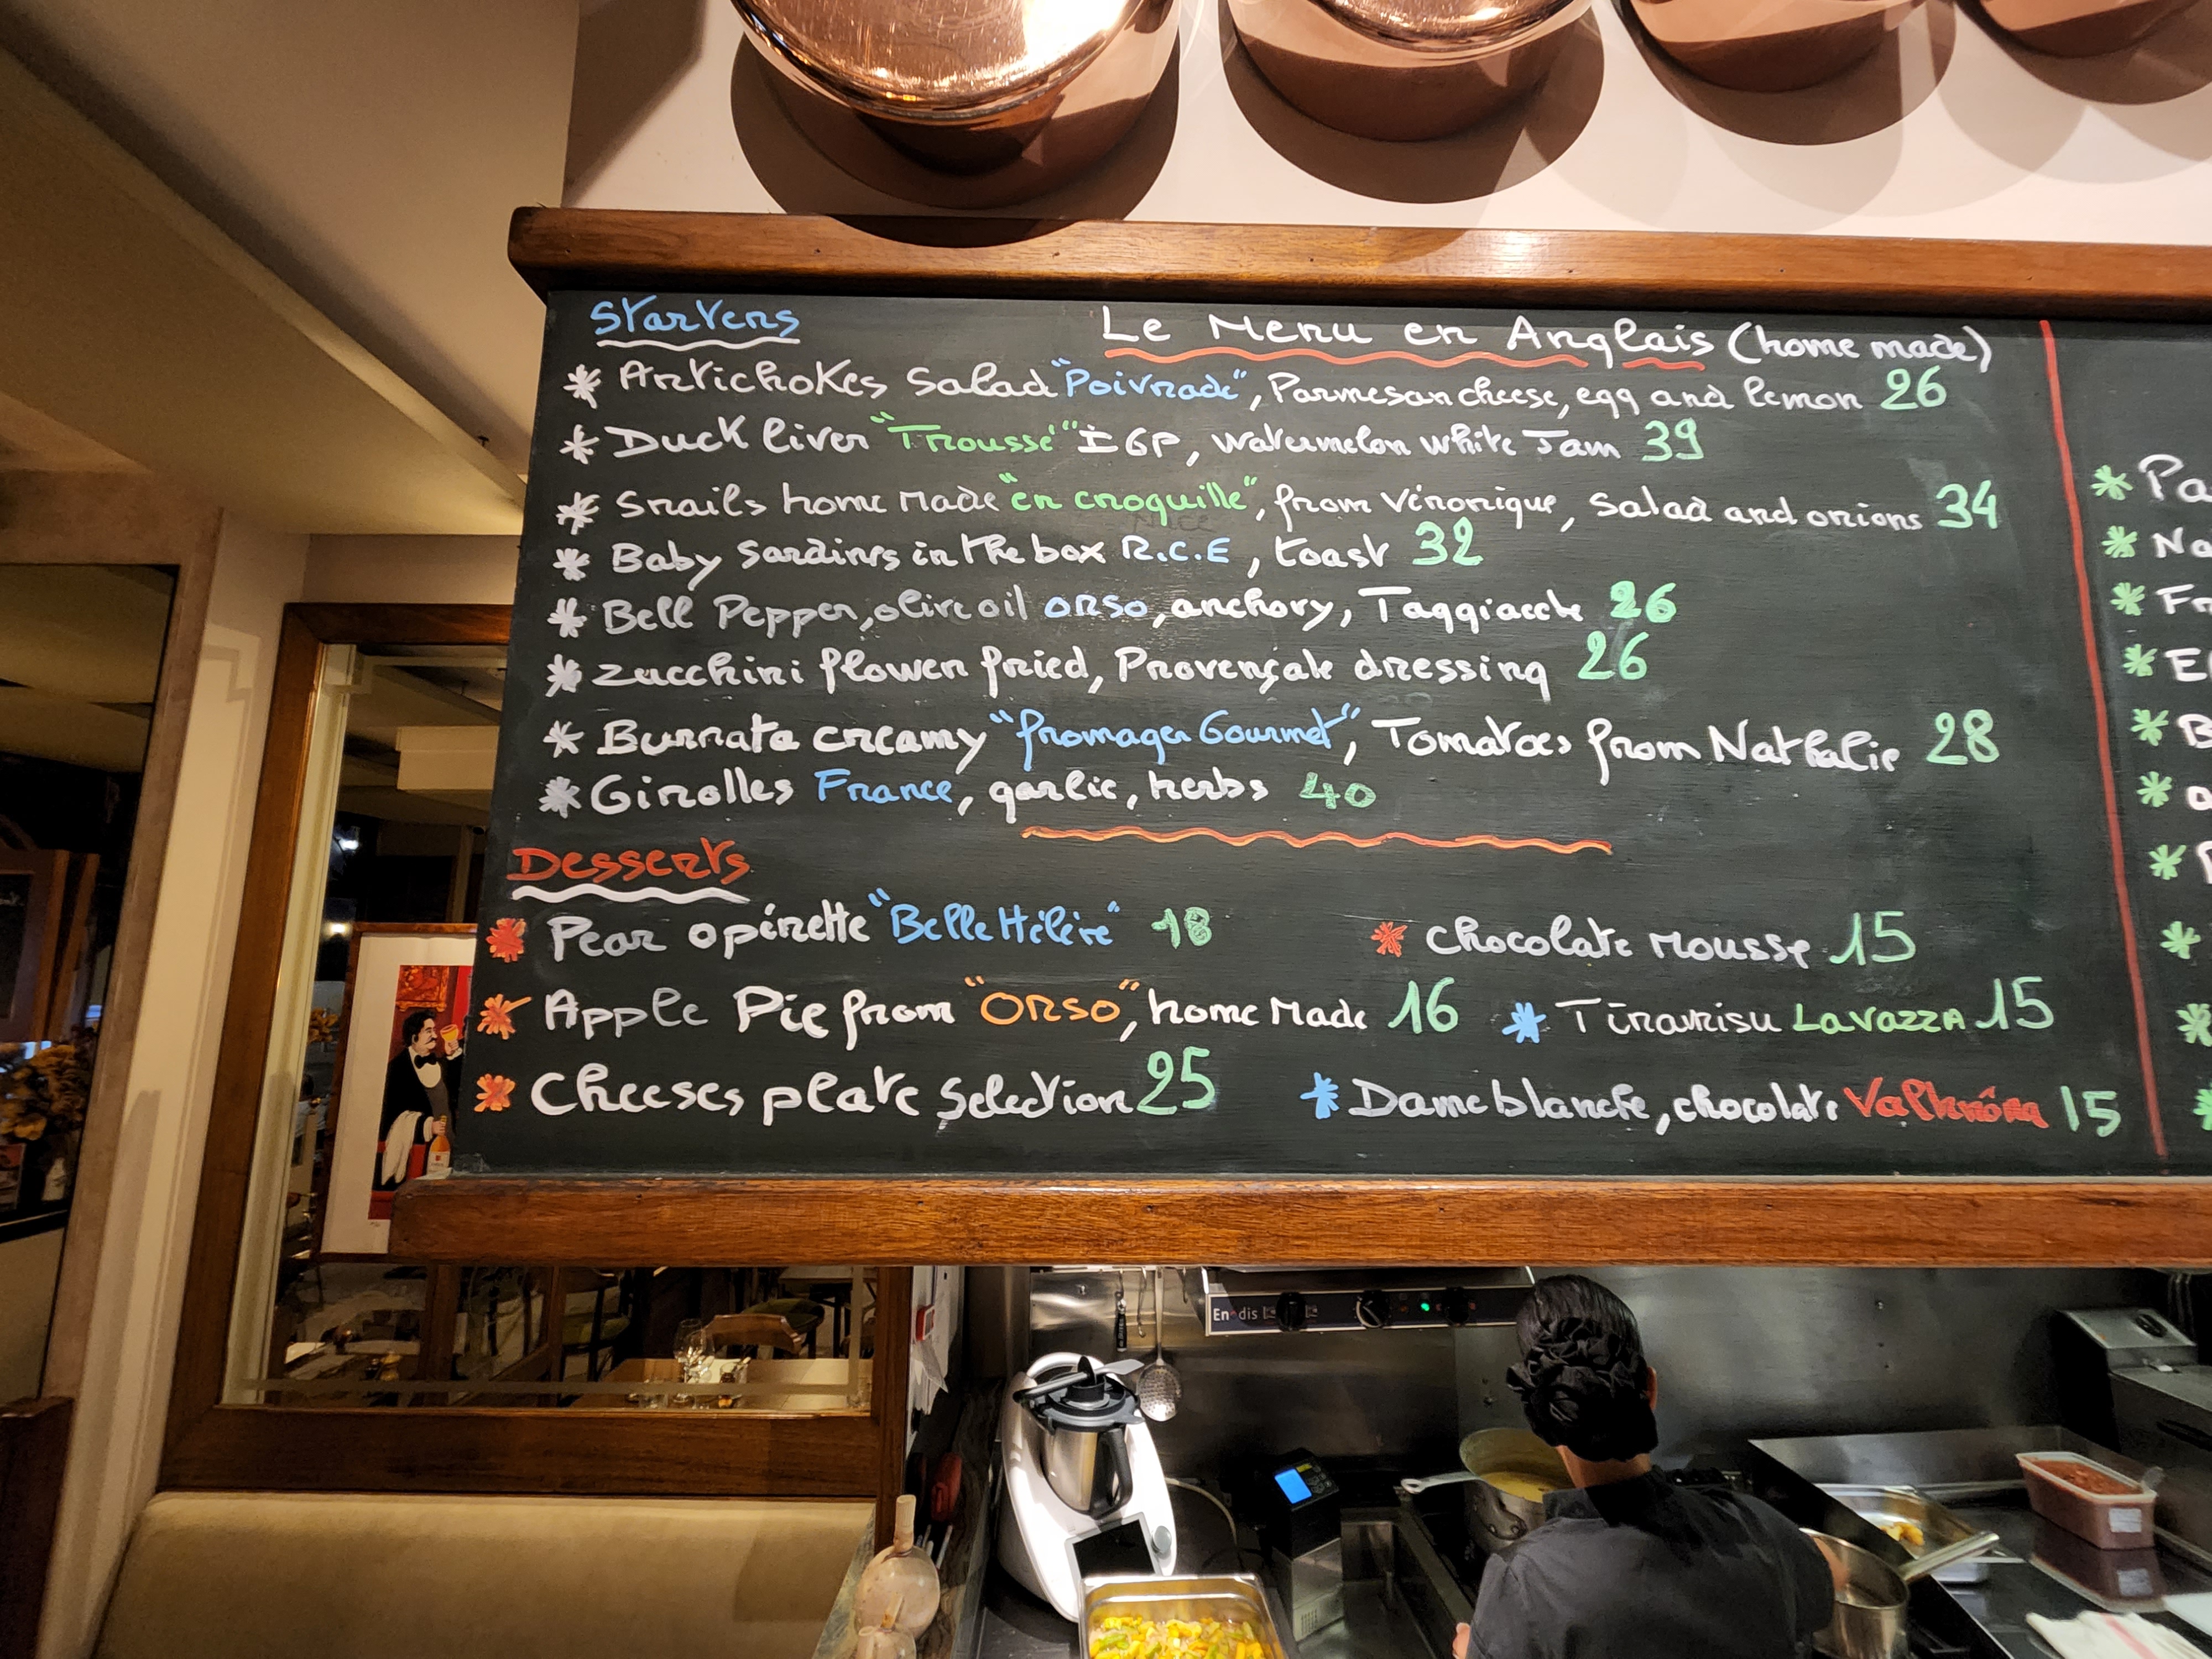 Starters
Le Menu en Anglais (home made)
* Artichokes Salad "Poivrade", Parmesan cheese, egg and lemon 26
* Duck liver "Troussé" IGP, watermelon white Jam 39
* Snails home Made "en croquille", from Véronique, Salad and onions 34
* Baby Sardines in the box R.C.E, toast 32
* Bell Pepper, olive oil ORSO, anchovy, Taggiasche 26
* Zucchini flower fried, Provençale dressing 26
* Burrata creamy "fromager Gourmet", Tomatoes from Nathalie 28
* Girolles France, garlic, herbs 40
Desserts
* Pear opinette "Belle Hélène" 18
* Chocolate Mousse 15
* Apple Pie from "ORSO", home Made 16
* Tiramisu LavazzA 15
* Cheeses plate Selection 25
* Dame blanche, chocolate Valhrôna 15
* Pa
* Na
* Fr
* B
En dis